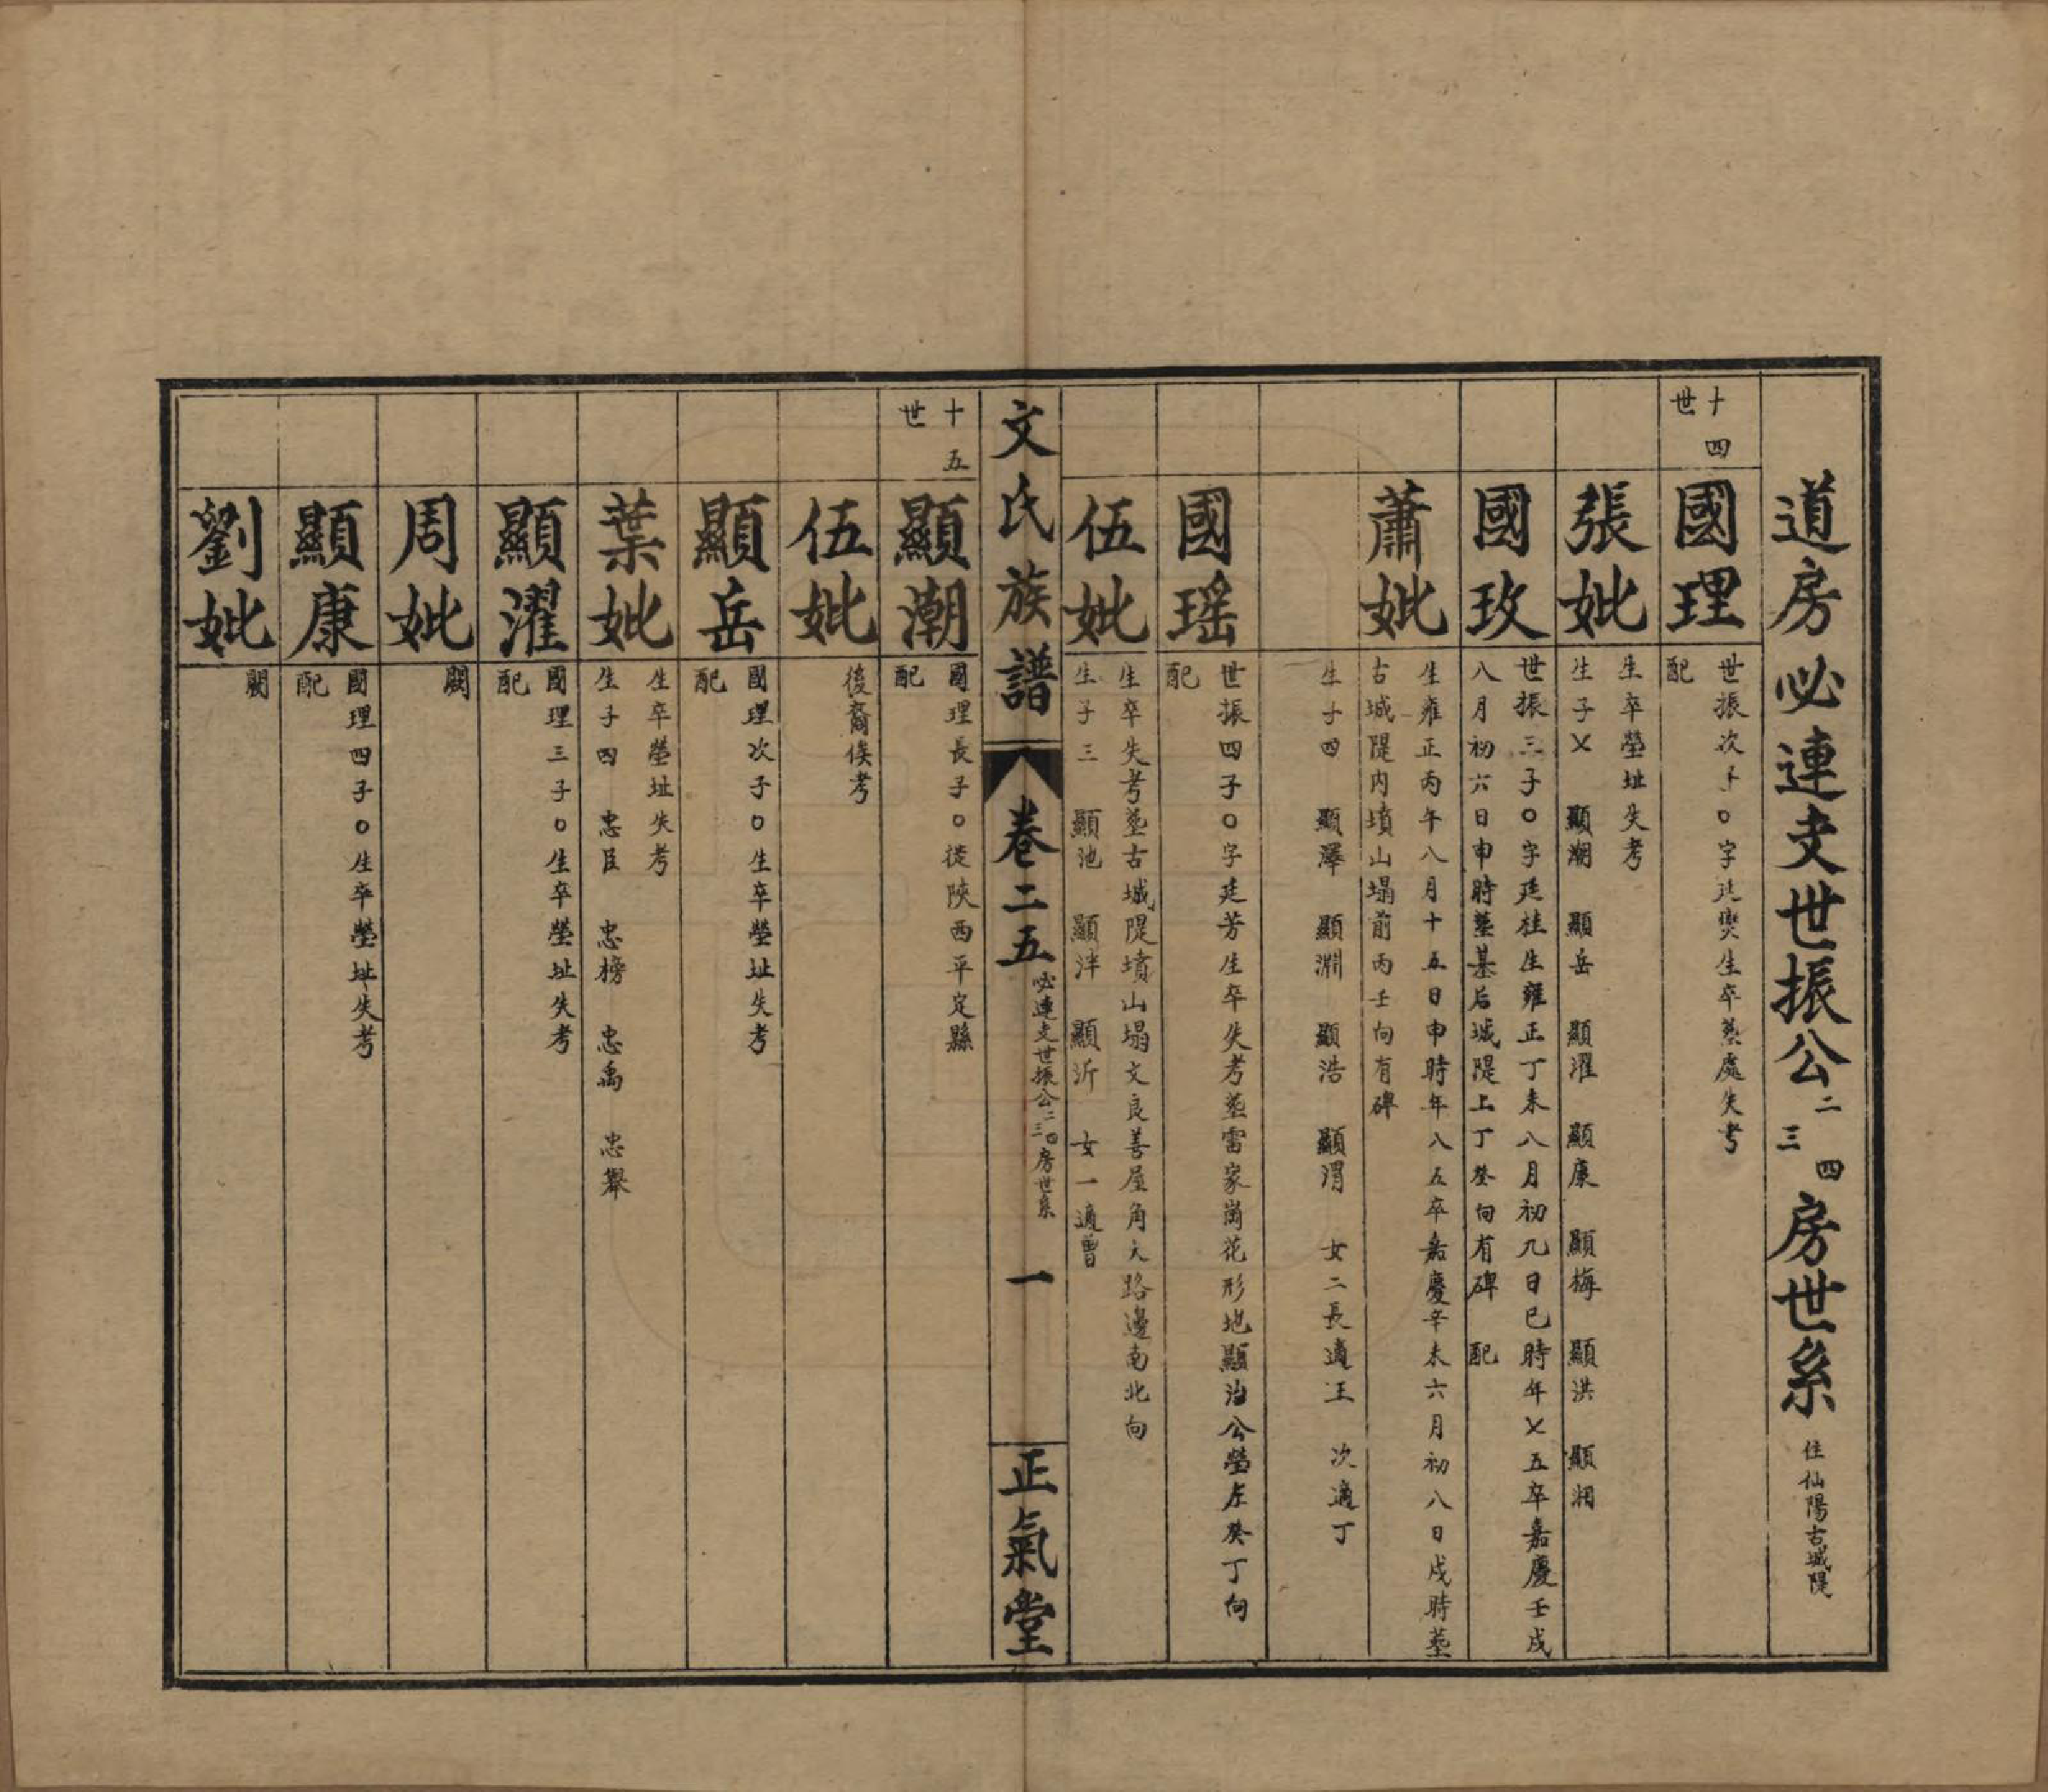 道房必連支世振公二三四房世系 住仙陽古城隄
十四世
國理
世振次子○字廷爕生卒塟處失考
配
張妣
生卒塋址失考
生子乂 顯潮 顯岳 顯濯 顯康 顯梅 顯洪 顯湘
國玫
世振三子○字廷桂生雍正丁未八月初九日巳時年乂五卒嘉慶壬戌
八月初六日申時塟基后城隄上丁癸向有碑 配
蕭妣
生雍正丙午八月十五日申時年八五卒嘉慶辛未六月初八日戌時塟
古城隄内墳山塌前丙壬向有碑
生子四 顯澤 顯淵 顯浩 顯渭 女二長適王 次適丁
國瑤
世振四子○字廷芳生卒失考塟雷家崗花形地顯治公塋左癸丁向
配
伍妣
生卒失考塟古城隄墳山塌文良善屋角大路邊南北向
生子三 顯池 顯泮 顯沂 女一適曾
文氏族譜
卷二五
必連支世振公二三四房世系
一
正氣堂
十五世
顯潮
國理長子○從陝西平定縣
配
伍妣
後裔俟考
顯岳
國理次子○生卒塋址失考
配
葉妣
生卒塋址失考
生子四 忠臣 忠榜 忠禹 忠舉
顯濯
國理三子○生卒塋址失考
配
周妣
闕
顯康
國理四子○生卒塋址失考
配
劉妣
闕